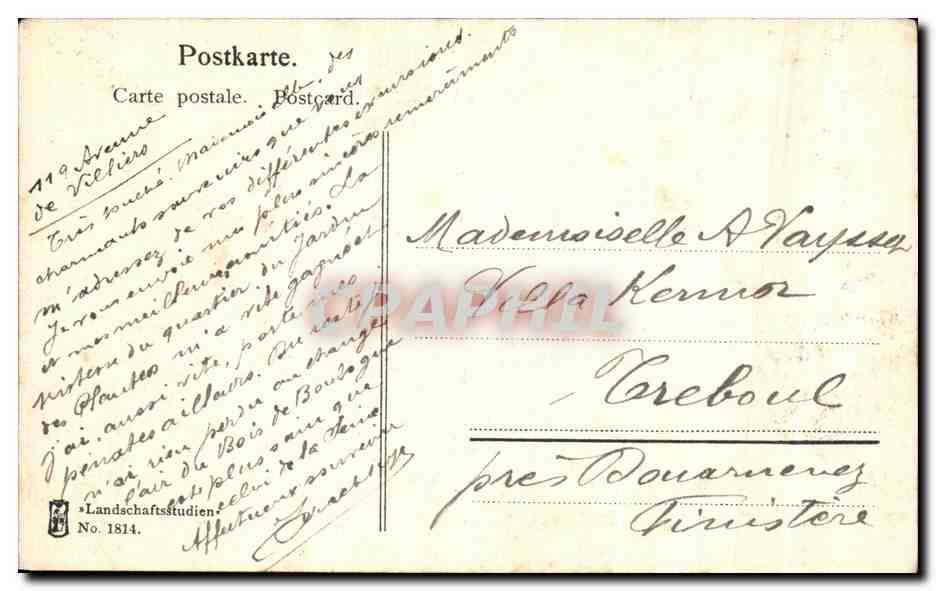 Postkarte.
Carte postale. Postcard.
119 Avenue
de Villiers
Très touché Mademoiselle des
charmants souvenirs que vous
m'adressez de vos différentes excursions.
Je vous envoie mes plus sincères remerciments
et mes meilleures amitiés. La
tristesse du quartier du Jardin
des Plantes m'a vite gagné et
j'ai aussi vite, porté mes
pénates ailleurs. Du reste je
n'ai rien perdu au change
l'air du Bois de Boulogne
est plus sain que
celui de la Seine
Affectueux souvenir
Mademoiselle A Vaysse
Villa Kermor
Treboul
près Douarnenez
Finistère
»Landschaftsstudien«
No. 1814.
CPAPHIL